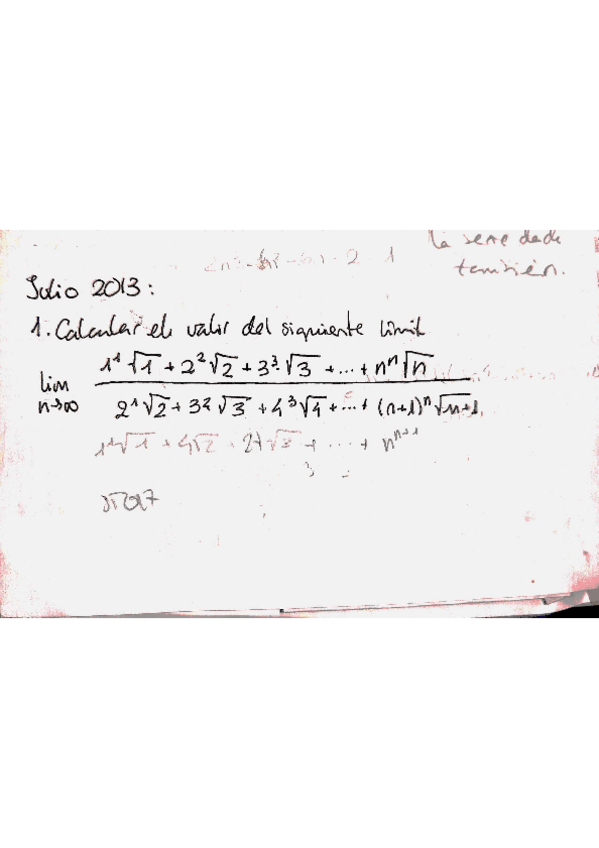 la serie dada
también.
Julio 2013:
1. Calcular el valor del siguiente límit
lim n→∞ (1¹·√1 + 2²√2 + 3³·√3 + ... + nⁿ√n) / (2¹√2 + 3²√3 + 4³√4 + ... + (n+1)ⁿ√(n+1))
1·√1 + 4√2 + 27√3 + ... + nⁿ⁺¹